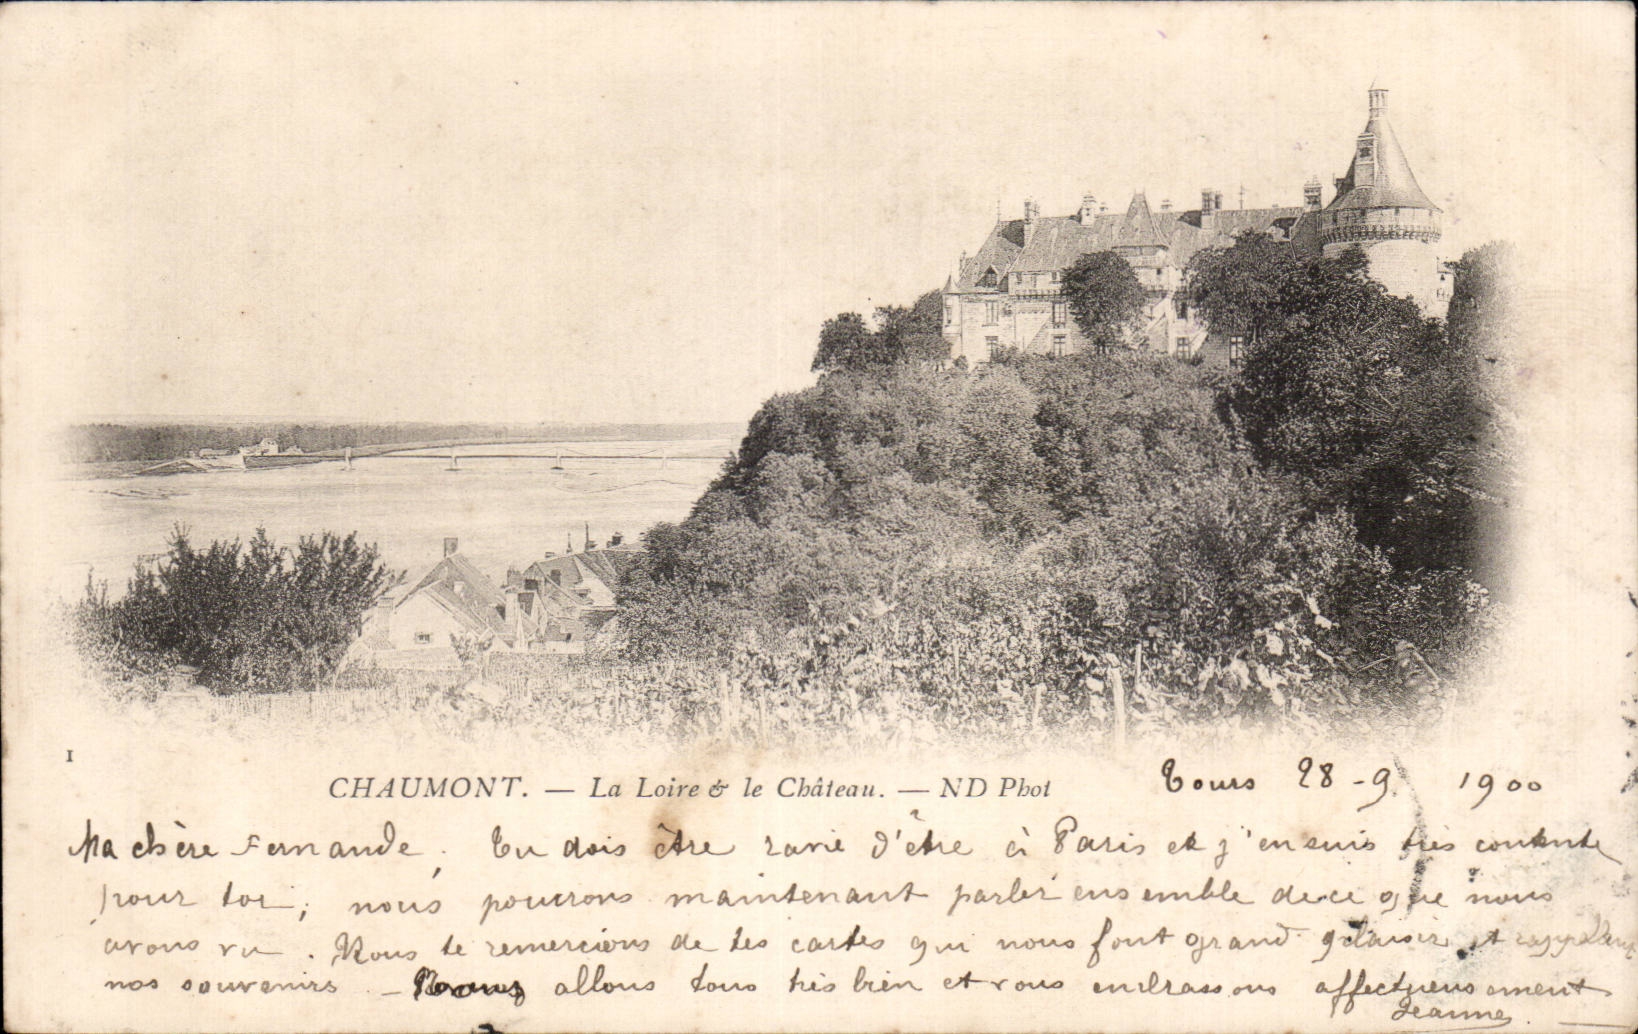 1
CHAUMONT. — La Loire & le Château. — ND Phot
Tours 28-9 1900
Ma chère Fernande. Tu dois être ravie d'être à Paris et j'en suis très contente
pour toi; nous pourrons maintenant parler ensemble de ce que nous
avons vu. Nous te remercions de tes cartes qui nous font grand plaisir et rappellent
nos souvenirs — Nous allons tous très bien et vous embrassons affectueusement
Jeanne.